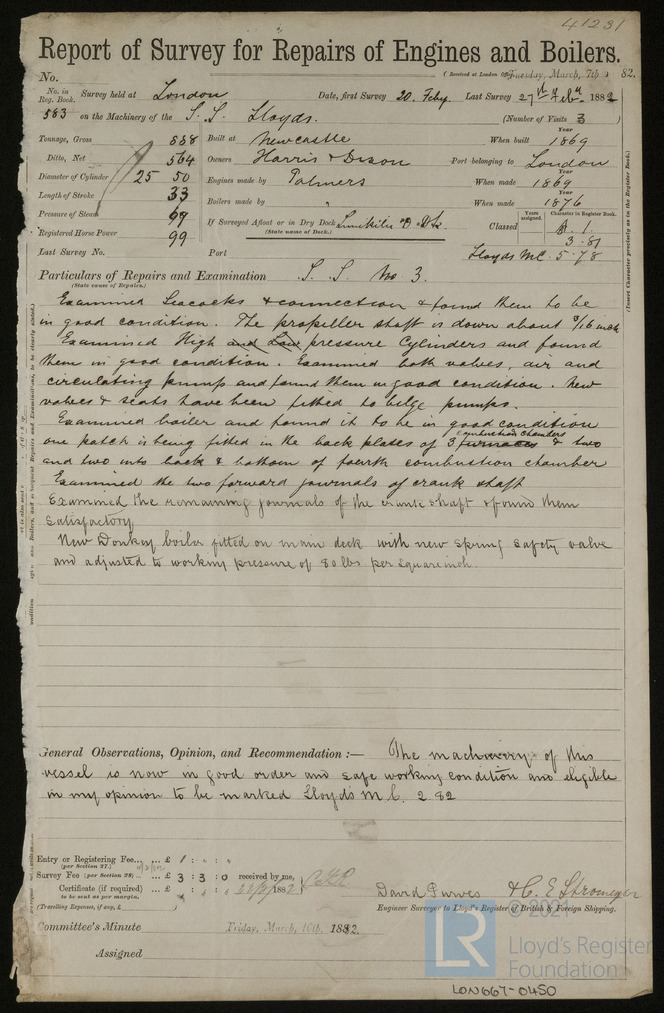 41231
Report of Survey for Repairs of Engines and Boilers.
No. (Received at London Office Tuesday, March, 7th 1882.
No. in Reg. Book. Survey held at London Date, first Survey 20. Feby. Last Survey 27th Feby. 1882
583 on the Machinery of the S. S. Lloyds. (Number of Visits 3)
Tonnage, Gross 858 Built at Newcastle When built Year 1869
Ditto, Net 564 Owners Harris & Dixon Port belonging to London
Diameter of Cylinder 25 50 Engines made by Palmers When made Year 1869
Length of Stroke 33 Boilers made by " When made Year 1876
Pressure of Steam 69 If Surveyed Afloat or in Dry Dock D. Dk. Classed Years assigned. Character in Register Book. A. 1.
(State name of Dock.) 3.81
Registered Horse Power 99
Last Survey No. Port Lloyds M.C. 5.78
(Insert Character precisely as in the Register Book.)
Particulars of Repairs and Examination S. S. No 3.
(State cause of Repairs.)
Examined Seacocks & connection & found them to be
in good condition. The propeller shaft is down about 3/16 inch
Examined High and Low pressure Cylinders and found
them in good condition. Examined both valves, air and
circulating pump and found them in good condition. New
valves & seats have been fitted to bilge pumps.
Examined boiler and found it to be in good condition
combustion chambers
one patch is being fitted in the back plates of 3 furnaces & two
and two into back & bottom of fourth combustion chamber
Examined the two forward journals of crank shaft
Examined the remaining journals of the crank shaft & found them
satisfactory
New Donkey boiler fitted on main deck with new spring safety valve
and adjusted to working pressure of 80 lbs per square inch.
General Observations, Opinion, and Recommendation :— The machinery of this
vessel is now in good order and safe working condition and eligible
in my opinion to be marked Lloyds M.C. 2 82
Entry or Registering Fee... ... £ 1 : " : "
(per Section 27.)
Survey Fee (per Section 28) ... £ 3 : 3 : 0 received by me,
Certificate (if required) ... £ 1882
to be sent as per margin.
(Travelling Expenses, if any, £ )
David Purves & C. E. Stromeyer
Engineer Surveyor to Lloyd's Register of British & Foreign Shipping.
Committee's Minute Friday, March, 10th, 1882.
Assigned
© 2021
LR
Lloyd's Register
Foundation
LON667-0450